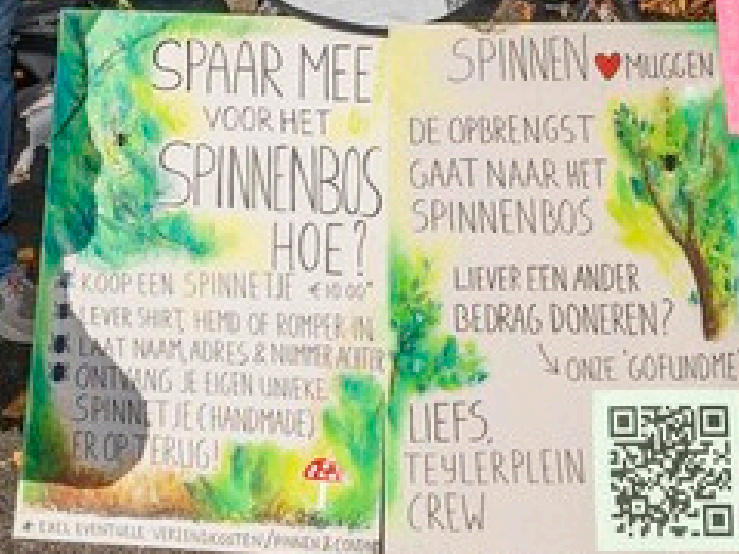 SPAAR MEE
VOOR HET
SPINNENBOS
HOE?
* KOOP EEN SPINNETJE €10.00*
* LEVER SHIRT, HEMD OF ROMPER IN
* LAAT NAAM, ADRES & NUMMER ACHTER
* ONTVANG JE EIGEN UNIEKE
SPINNETJE (HANDMADE)
ER OP TERUG!
* EXCL EVENTUELE VERZENDKOSTEN /
SPINNEN ♥ MUGGEN
DE OPBRENGST
GAAT NAAR HET
SPINNENBOS
LIEVER EEN ANDER
BEDRAG DONEREN?
↘ ONZE 'GOFUNDME'
LIEFS,
TEYLERPLEIN
CREW